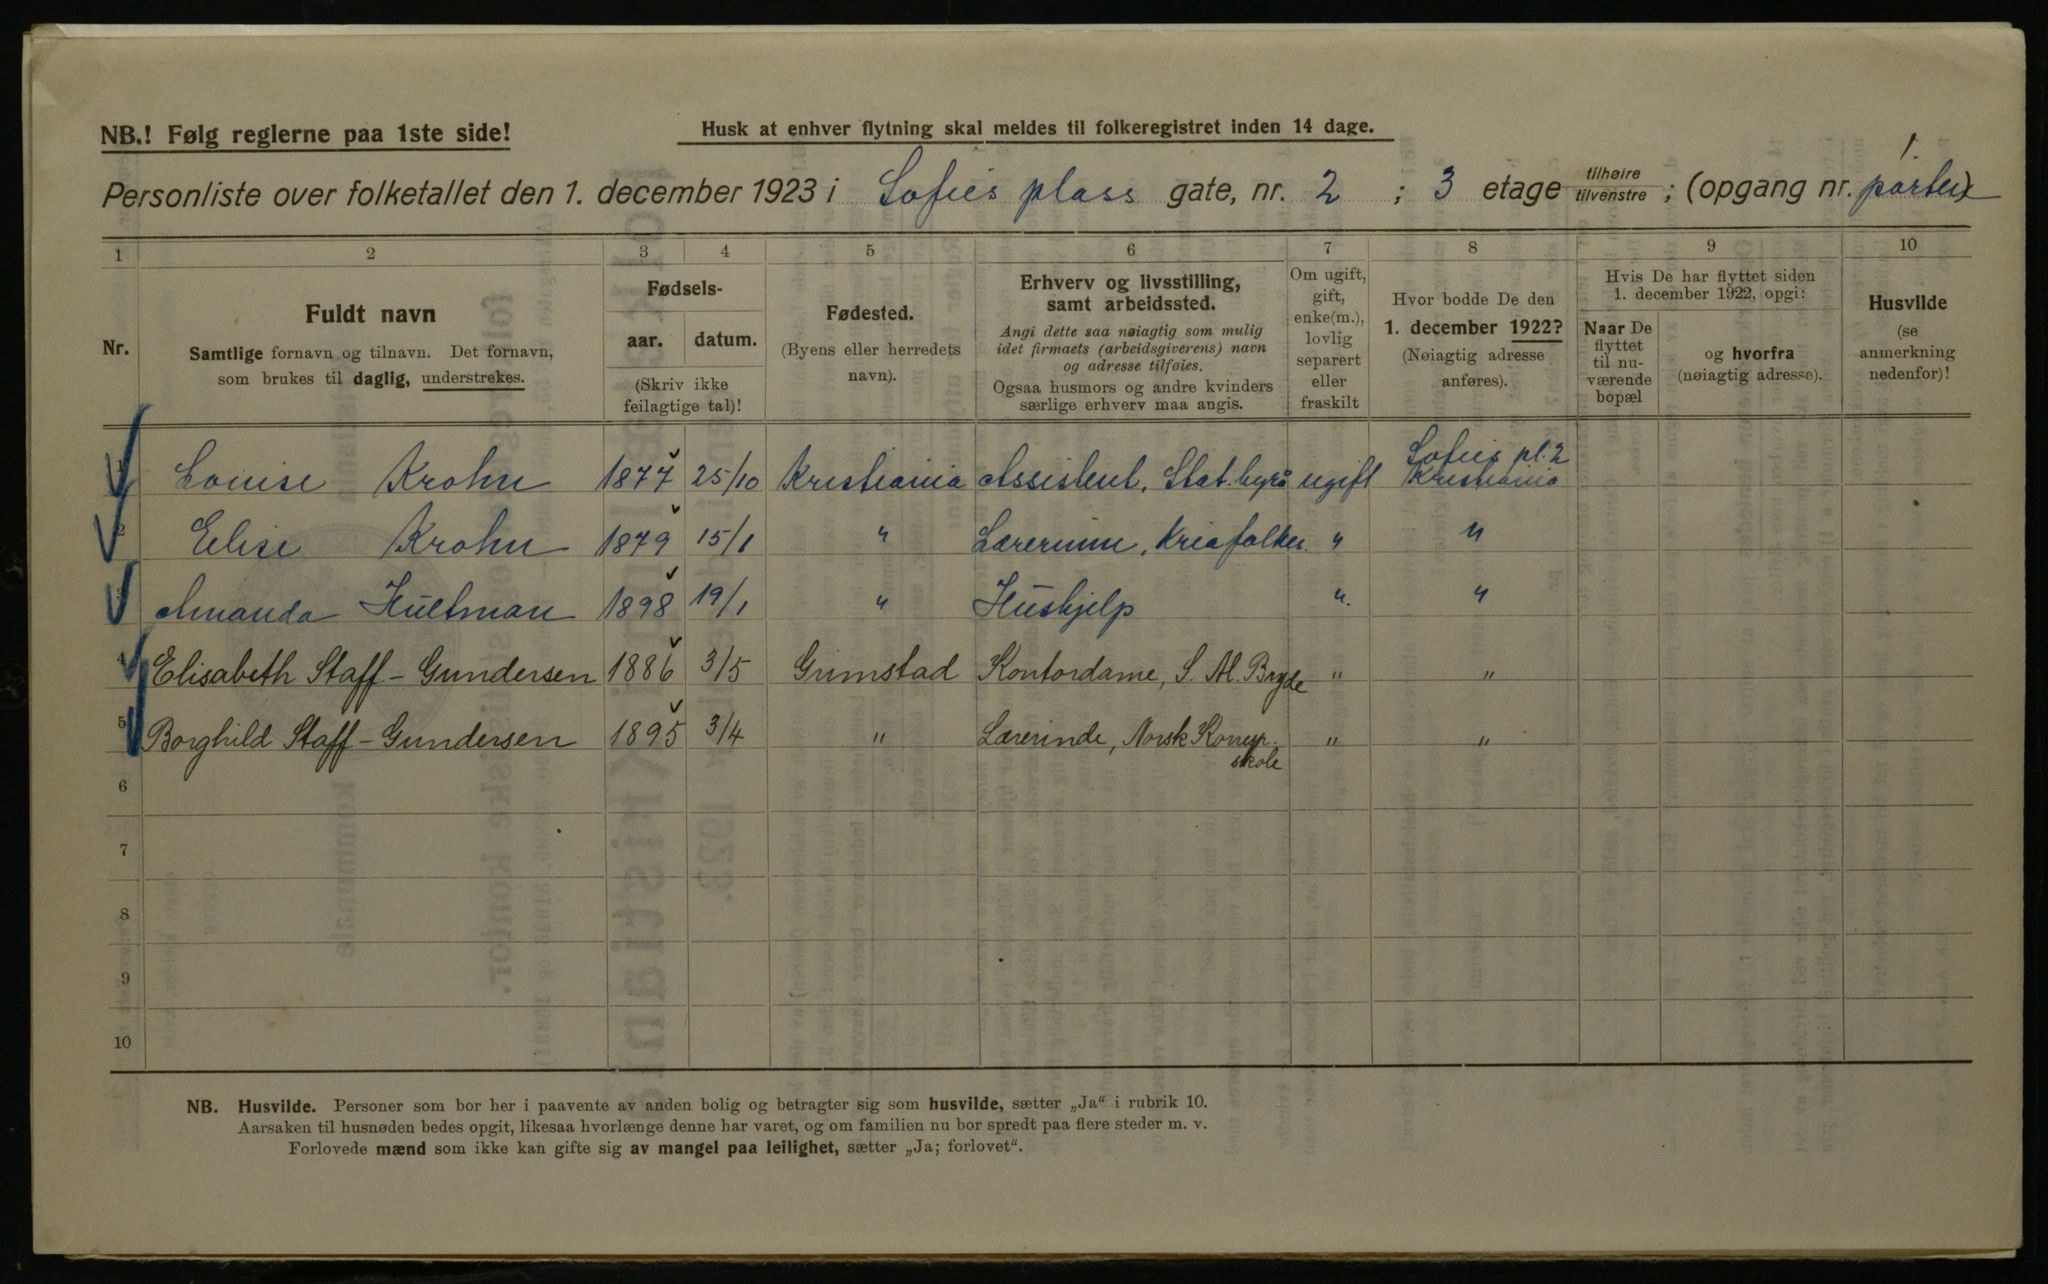 NB.! Følg reglerne paa 1ste side!
Husk at enhver flytning skal meldes til folkeregistret inden 14 dage.
Personliste over folketallet den 1. december 1923 i Sofies plass gate, nr. 2 ; 3 etage tilhøire tilvenstre ; (opgang nr. 1. parterre)
1 2 3 4 5 6 7 8 9 10
Nr.
Fuldt navn
Samtlige fornavn og tilnavn. Det fornavn,
som brukes til daglig, understrekes.
Fødsels-
aar. datum.
(Skriv ikke
feilagtige tal)!
Fødested.
(Byens eller herredets
navn).
Erhverv og livsstilling,
samt arbeidssted.
Angi dette saa nøiagtig som mulig
idet firmaets (arbeidsgiverens) navn
og adresse tilføies.
Ogsaa husmors og andre kvinders
særlige erhverv maa angis.
Om ugift,
gift,
enke(m.),
lovlig
separert
eller
fraskilt
Hvor bodde De den
1. december 1922?
(Nøiagtig adresse
anføres).
Hvis De har flyttet siden
1. december 1922, opgi:
Naar De
flyttet
til nu-
værende
bopæl
og hvorfra
(nøiagtig adresse).
Husvilde
(se
anmerkning
nedenfor)!
1 Louise Krohn 1877 25/10 Kristiania Assistent, Stat. byrå ugift Sofies pl. 2 Kristiania
2 Elise Krohn 1879 15/1 " Lærerinne, Kria folkes. " "
3 Amanda Hultman 1898 19/1 " Hushjelp " "
4 Elisabeth Staff-Gundersen 1886 3/5 Grimstad Kontordame, S. M. Bryde " "
5 Borghild Staff-Gundersen 1895 3/4 " Lærerinde, Norsk Korresp. skole " "
6
7
8
9
10
NB. Husvilde. Personer som bor her i paavente av anden bolig og betragter sig som husvilde, sætter „Ja" i rubrik 10.
Aarsaken til husnøden bedes opgit, likesaa hvorlænge denne har varet, og om familien nu bor spredt paa flere steder m. v.
Forlovede mænd som ikke kan gifte sig av mangel paa leilighet, sætter „Ja; forlovet".